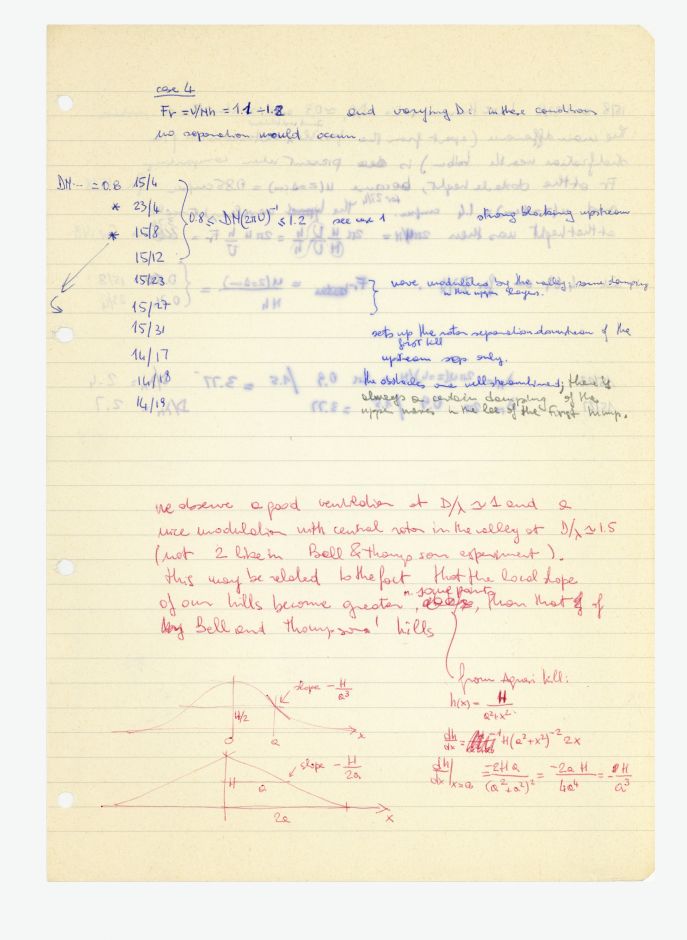 case 4
Fr = U/Nh = 1.1 ÷ 1.2 and varying D: in these conditions
no separation would occur.
DN... = 0.8 15/4
* 23/4
* 15/8 0.8 ≤ DN(2πU)⁻¹ ≤ 1.2 see case 1 strong blocking upstream
15/12
15/23 wave modulated by the valley; some damping
in the upper layers.
15/27
15/31 sets up the rotor separation downstream of the
first hill
14/17 upstream sep only.
14/18 the obstacles are well streamlined; there is
14/19 always a certain damping of the
upper waves in the lee of the first hump.
we observe a good ventilation at D/λ ≃ 1 and a
nice modulation with central rotor in the valley at D/λ ≃ 1.5
(not 2 like in Bell & Thompson experiment).
This may be related to the fact that the local slope
of our hills become greater, in some parts, than that of
Bell and Thompsons' hills
from Agnesi hill:
slope - H/a³
h(x) = H/a²+x²
H/2
0 a x
dh/dx = -1 H(a²+x²)⁻² 2x
slope - H/2a
dh/dx|x=a = -2Ha/(a²+a²)² = -2aH/4a⁴ = - H/a³
H a
2a x